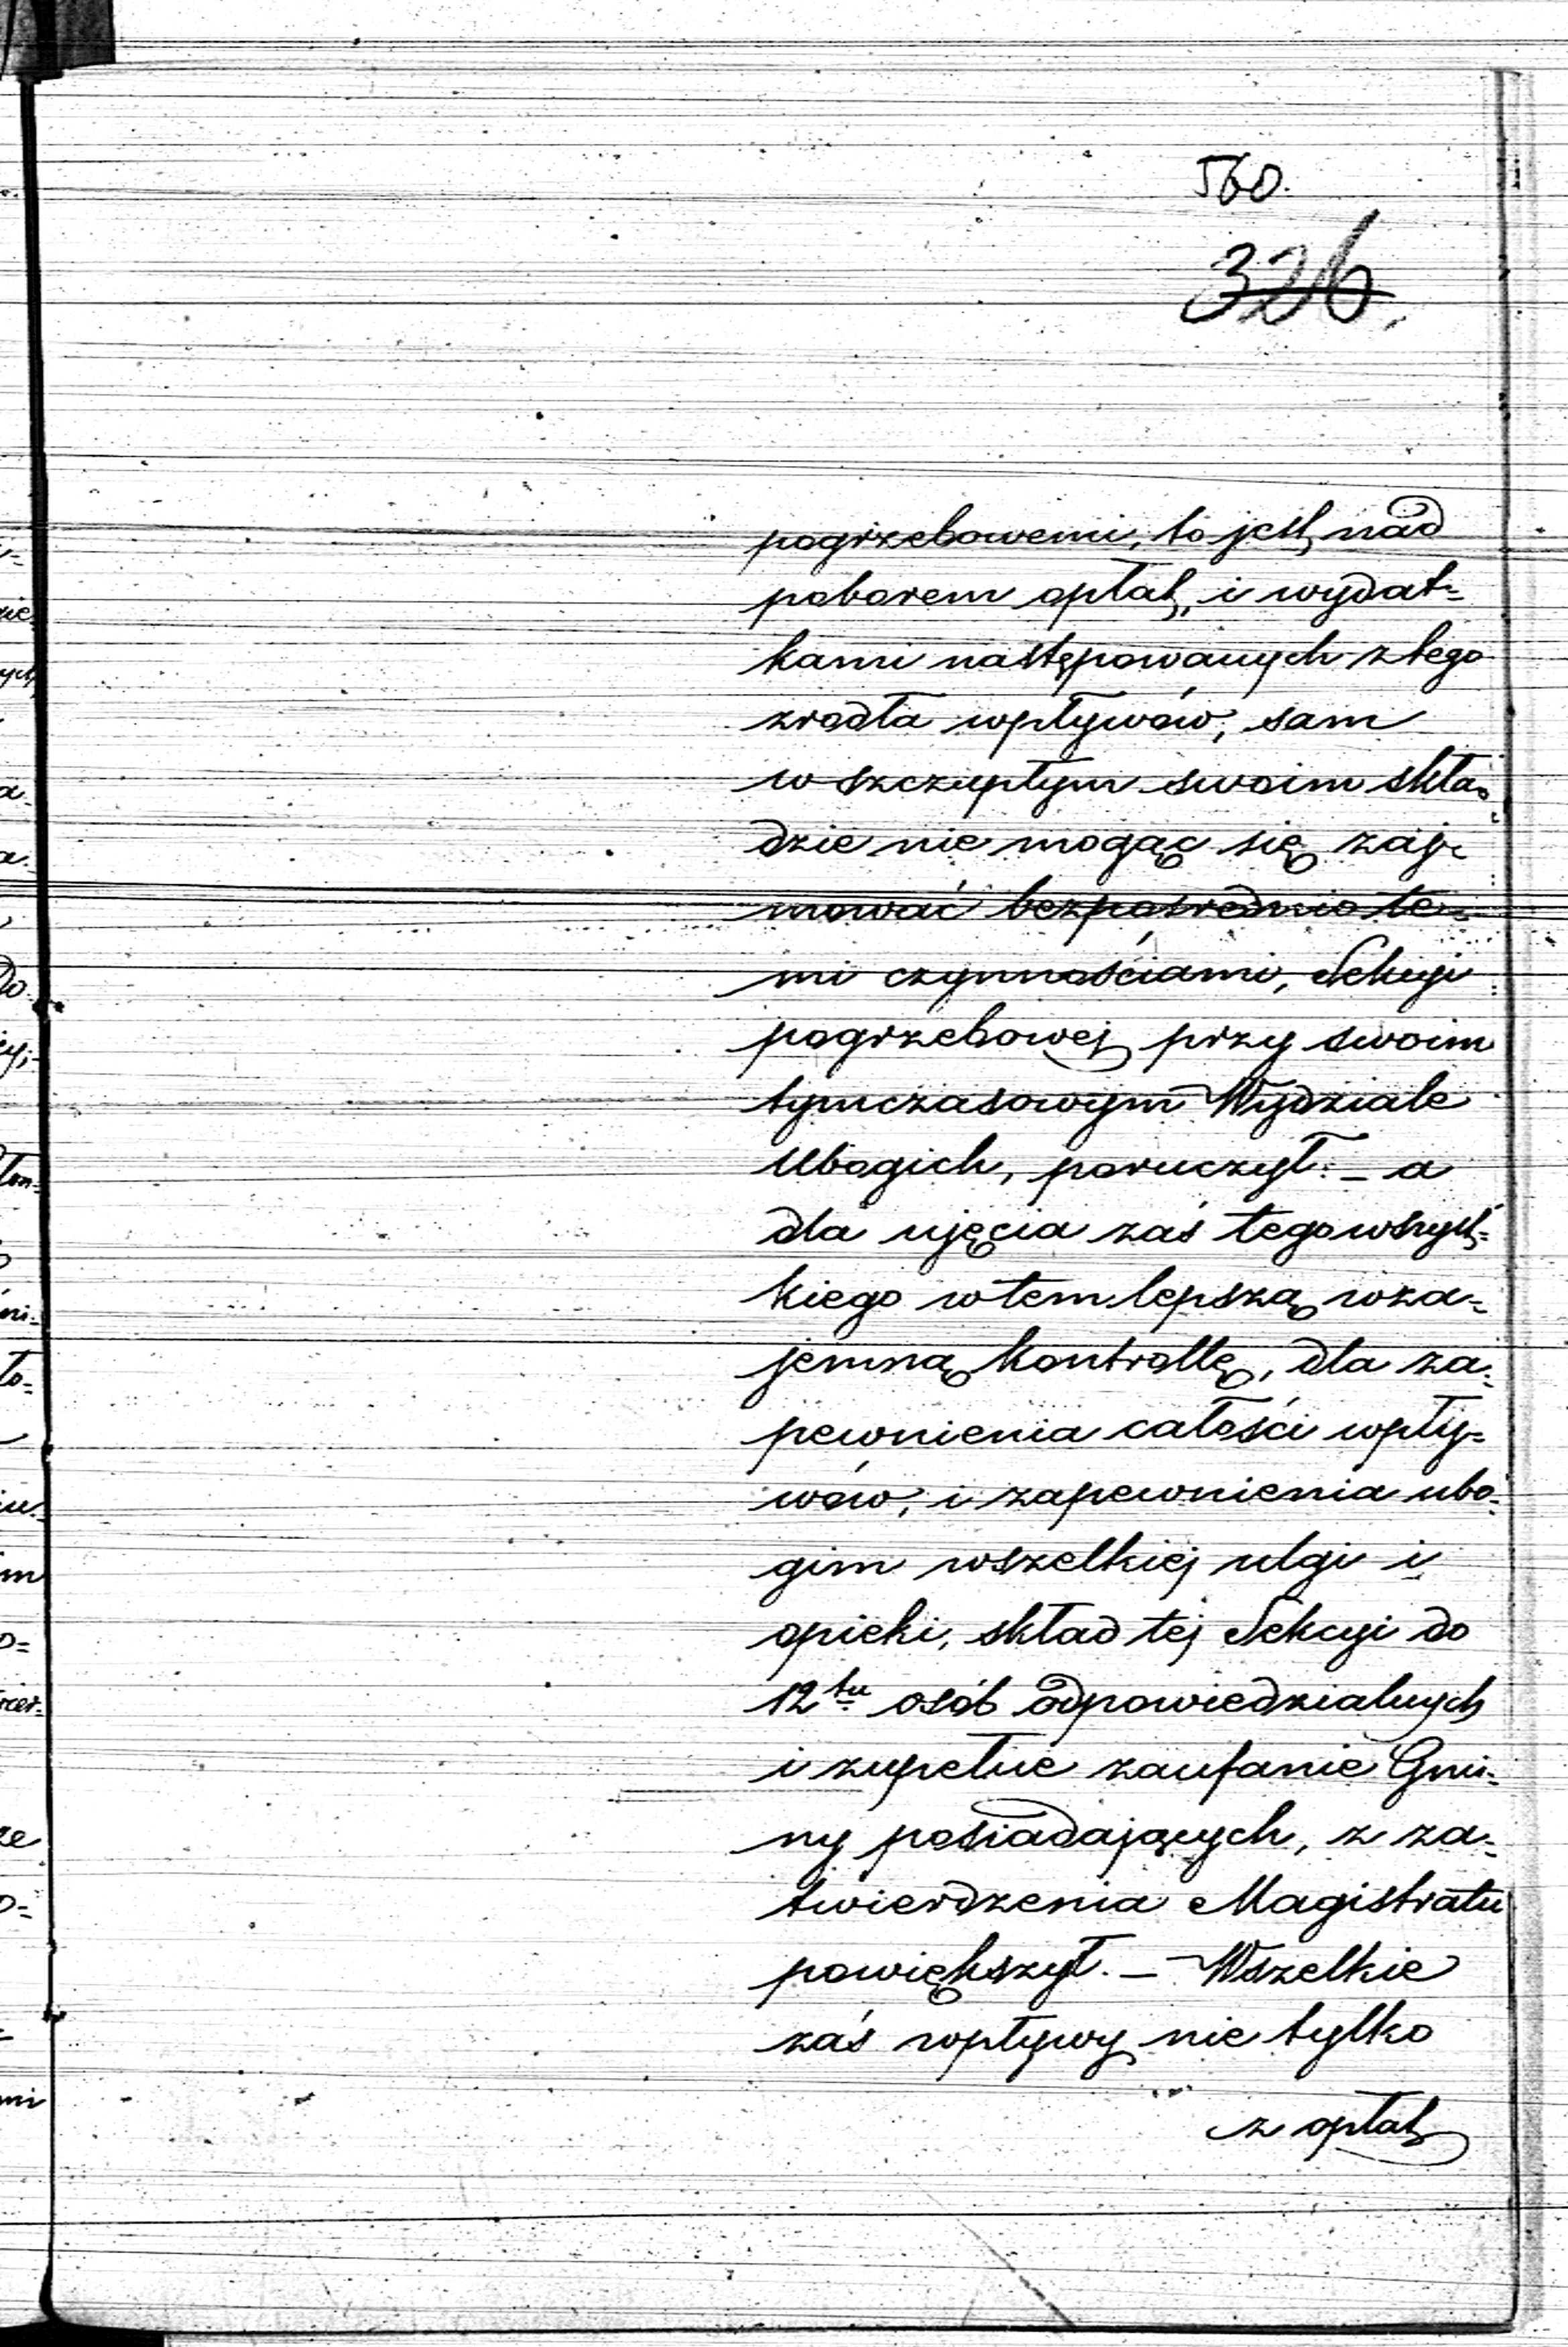 560.
326.
pogrzebowemi, to jest, nad
poborem opłat, i wydat=
kami nastepowanych z tego
zrodła wpływów, sam
w szczupłym swoim skła=
dzie nie mogąc się zaj=
mować bezpośrednio te=
mi czynnościami, Sekcyi
pogrzebowej przy swoim
tymczasowym Wydziale
Ubogich, poruczył: – a
dla ujęcia zaś tego wszyst=
kiego w tem lepszą wza=
jemną kontrollę, dla za=
pewnienia całości wpły=
wów, i zapewnienia ubo=
gim wszelkiej ulgi i
opieki, skład tej Sekcyi do
12tu osób odpowiedzialnych
i zupełne zaufanie Gmi=
ny posiadających, z za=
twierdzenia Magistratu
powiększył. – Wszelkie
zaś wpływy nie tylko
z opłat